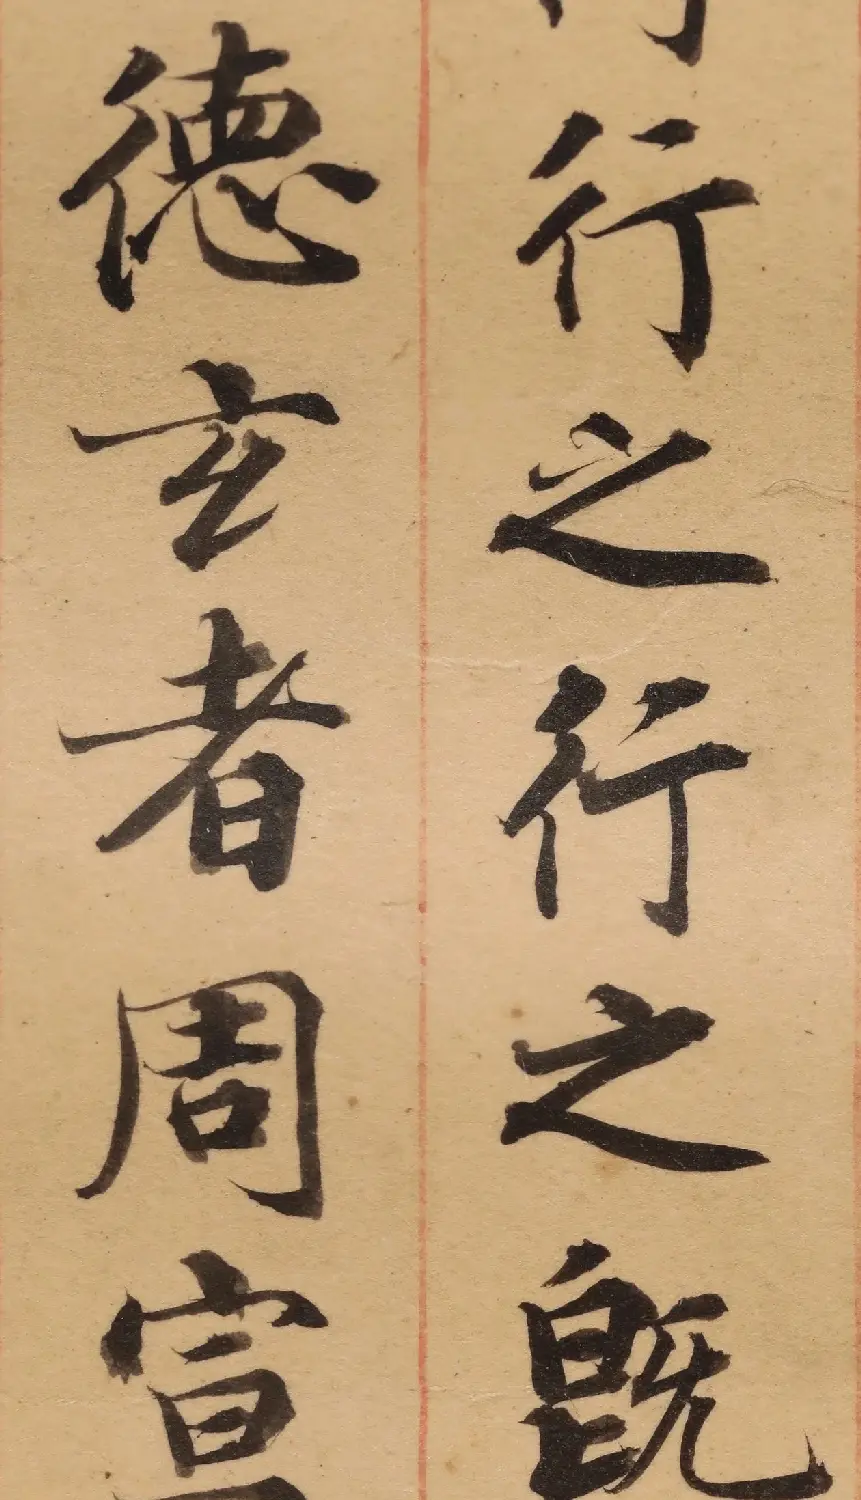 行之行之既
德玄者周宣